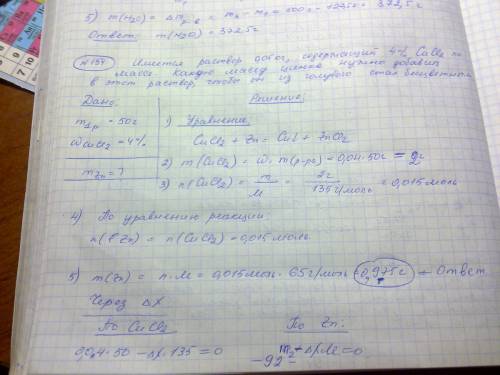 5) m(H2O) = Δm р-ра = m1 - m2 = 500г - 127,5г = 372,5г
Ответ: m(H2O) = 372,5г
№154 Имеется раствор 50г, содержащий 4% CuCl2 по
массе. Какую массу цинка нужно добавить
в этот раствор, чтобы он из голубого стал бесцветным
Дано: Решение:
m1р = 50г 1) Уравнение
ω CuCl2 = 4% CuCl2 + Zn = Cu↓ + ZnCl2
2) m(CuCl2) = ω · m(р-ра) = 0,04·50г = 2г
mZn = ? 3) n(CuCl2) = m/M = 2г/135г/моль = 0,015моль
4) По уравнению реакции:
n(Zn) = n(CuCl2) = 0,015моль
5) m(Zn) = n·M = 0,015моль · 65г/моль = 0,975г ← Ответ
Через ΔX
По CuCl2 По Zn:
0,04·50 - ΔX·135 = 0 m2 + ΔX·M = 0